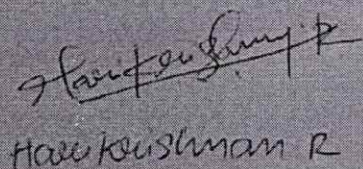 Harikrishnan R
Harikrishnan R